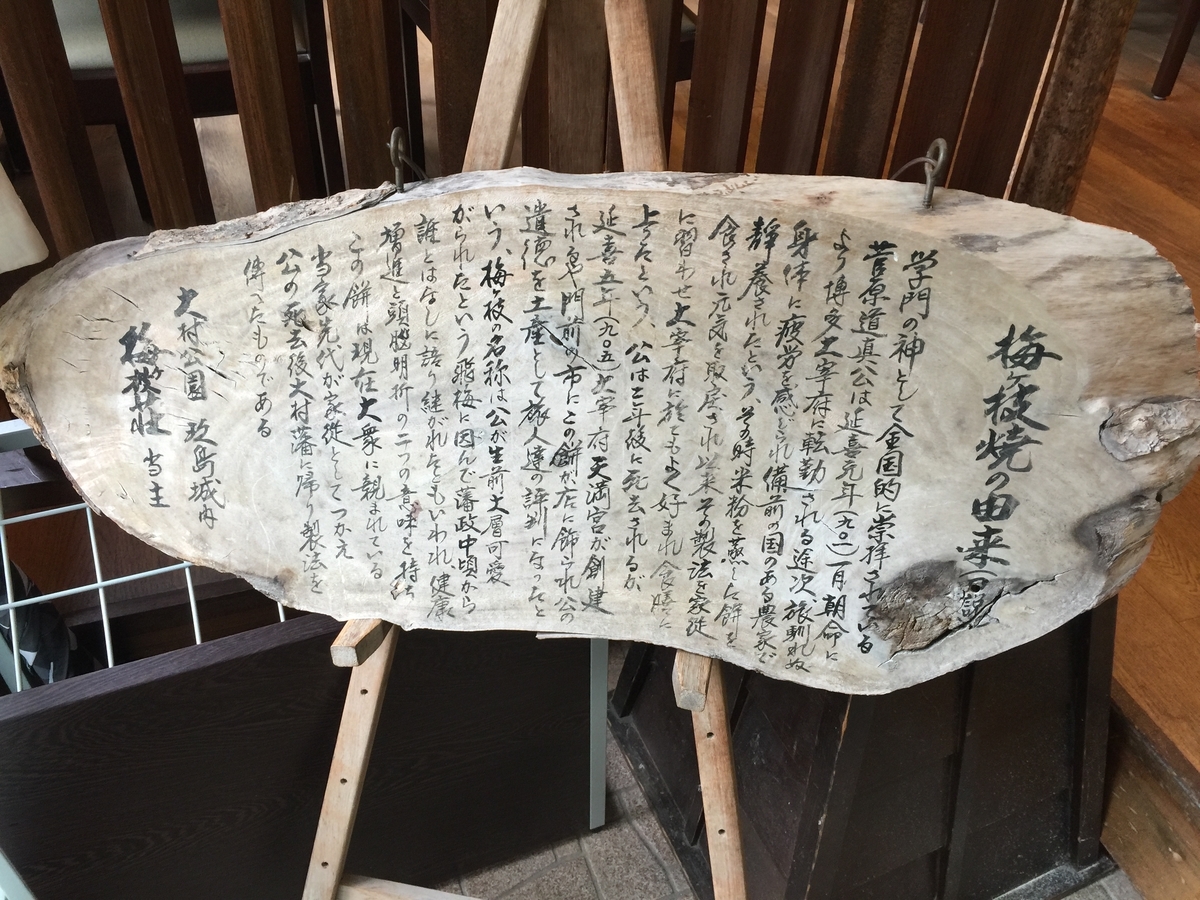 梅ヶ枝焼の由来(口説)
学門の神として全国的に崇拝されている
菅原道真公は延喜元年(九〇一)一月朝命に
より博多太宰府に転勤される途次、旅馴れぬ
身体に疲労を感じられ備前の国のある農家で
静養されたという、その時米粉を蒸した餅を
食され元気を取戻され以来その製法を家従
に習わせ太宰府に於てもよく好まれ食膳に
上ったという、公は三年後に死去されるが
延喜五年(九〇五)太宰府天満宮が創建
され門前の市にこの餅が店に飾られ公の
遺徳を土産として旅人達の評判になったと
いう、梅ヶ枝の名称は公が生前大層可愛
がられたという飛梅に因んで藩政中頃から
誰とはなしに語り継がれたともいわれ、健康
増進と頭脳明折の二つの意味を持ち
この餅は現在大衆に親まれている
当家先代が家従としてつかえ
公の死去後大村藩に帰り製法を
伝えたものである
大村公園 玖島城内
梅荘 当主